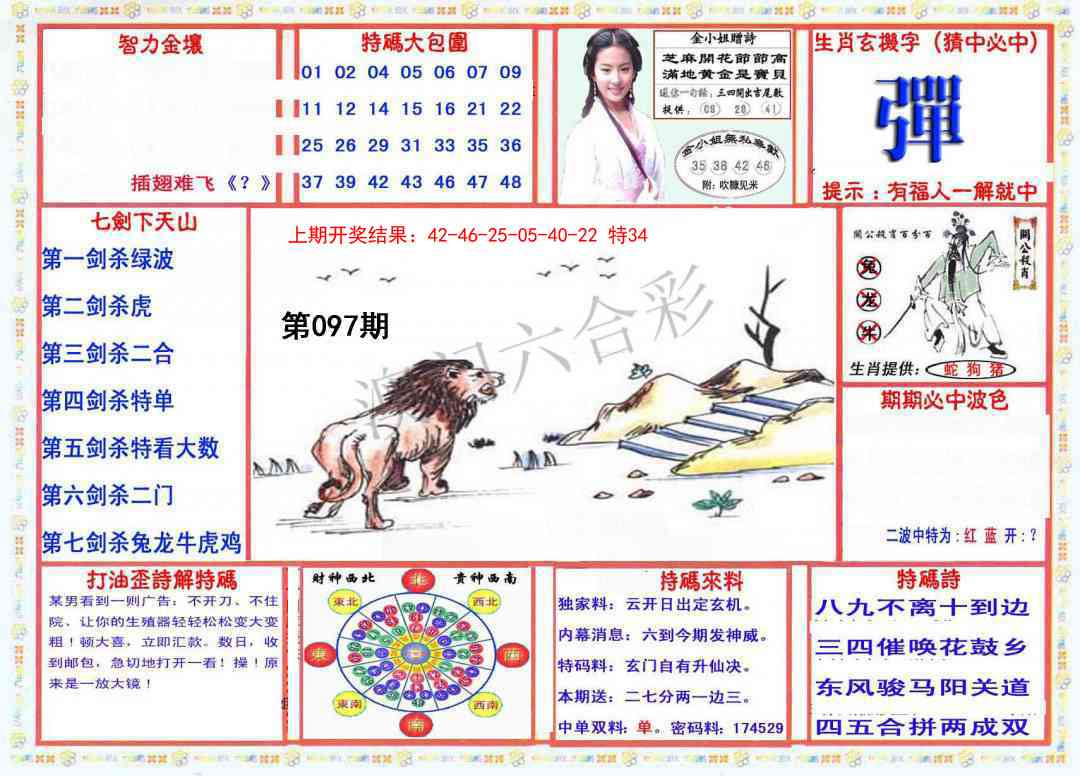 智力金壤
插翅难飞《？》
特碼大包圍
01 02 04 05 06 07 09
11 12 14 15 16 21 22
25 26 29 31 33 35 36
37 39 42 43 46 47 48
金小姐赠詩
芝麻開花節節高
滿地黄金是寶貝
送你一句話：三四開出吉尾數
提供：(08) (28) (41)
金小姐無私奉獻
35 38 42 46
附：吹糠见米
生肖玄機字（猜中必中）
彈
提示：有福人一解就中
七劍下天山
第一剑杀绿波
第二剑杀虎
第三剑杀二合
第四剑杀特单
第五剑杀特看大数
第六剑杀二门
第七剑杀兔龙牛虎鸡
上期开奖结果：42-46-25-05-40-22 特34
第097期
澳门六合彩
關公殺肖百分百
關公殺肖
兔
龙
牛
生肖提供：蛇 狗 猪
期期必中波色
二波中特为：红 蓝 开：？
打油歪詩解特碼
某男看到一则广告：不开刀、不住
院、让你的生殖器轻轻松松变大变
粗！顿大喜，立即汇款。数日，收
到邮包，急切地打开一看！操！原
来是一放大镜！
财神西北
贵神西南
北
東北
西北
東
西
東南
西南
南
持碼來料
独家料：云开日出定玄机。
内幕消息：六到今期发神威。
特码料：玄门自有升仙决。
本期送：二七分两一边三。
中单双料：单。密码料：174529
特碼詩
八九不离十到边
三四催唤花鼓乡
东风骏马阳关道
四五合拼两成双